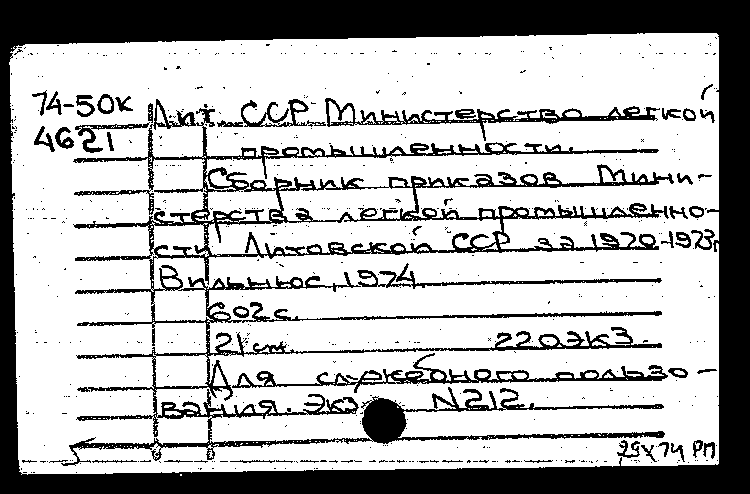 74-50к Лит. ССР Министерство легкой
4621 промышленности.
Сборник приказов Мини-
стерства легкой промышленно-
сти Литовской ССР за 1970-1973г.
Вильнюс, 1974.
602 с.
21 см. 220 экз.
Для служебного пользо-
вания. Экз. N212.
29X74 РП